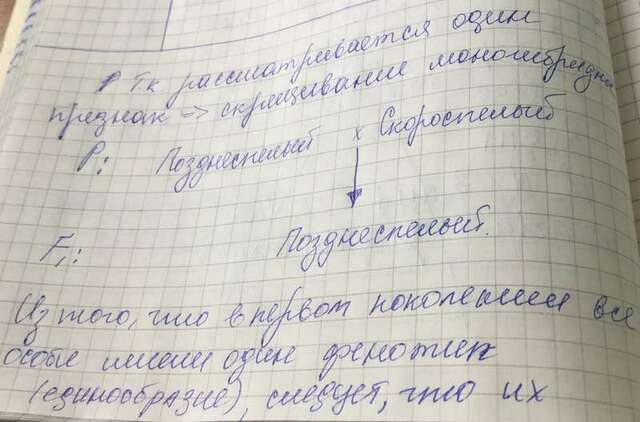 Т.к рассматривается один
признак => скрещивание моногибридн
P: Позднеспелый х Скороспелый
F₁: Позднеспелый.
Из того, что в первом поколении все
особи имели один фенотип
(единообразие), следует, что их